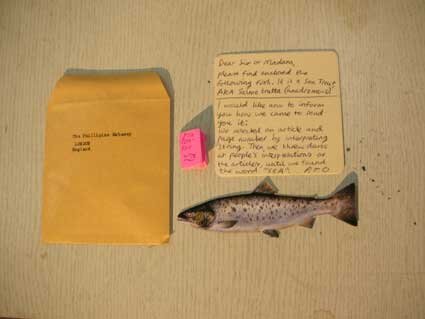 The Phillipine Embassy
LONDON
England
Dear Sir or Madam,
please find enclosed the
following fish. It is a Sea Trout
AKA Salmo trutta
I would like now to inform
you how we came to send
you it;
We selected an article and
page number by interpreting
string. Then we threw darts
at people's interpretations of
the articles, until we found
the word "SEA" PTO